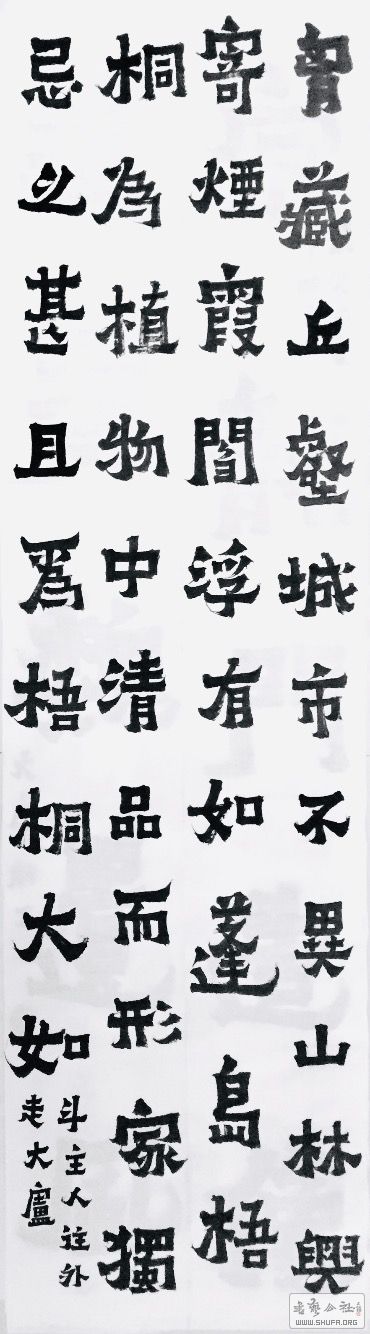 胷藏丘壑城市不異山林興
寄煙霞閻浮有如蓬島梧
桐為植物中清品而形家獨
忌之甚且爲梧桐大如
斗主人往外
走大盧
書藝公社
WWW.SHUFA.ORG